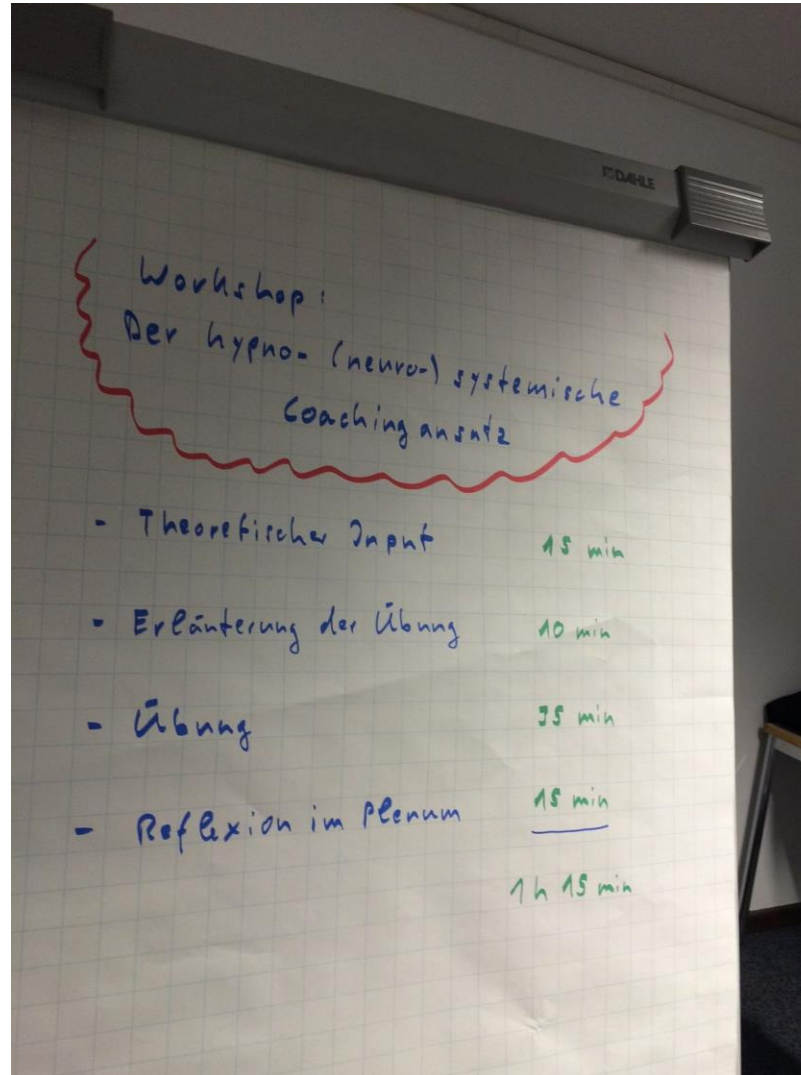 DAHLE
Workshop:
Der hypno- (neuro-) systemische
Coachingansatz
- Theoretischer Input 15 min
- Erläuterung der Übung 10 min
- Übung 35 min
- Reflexion im Plenum 15 min
1h 15 min